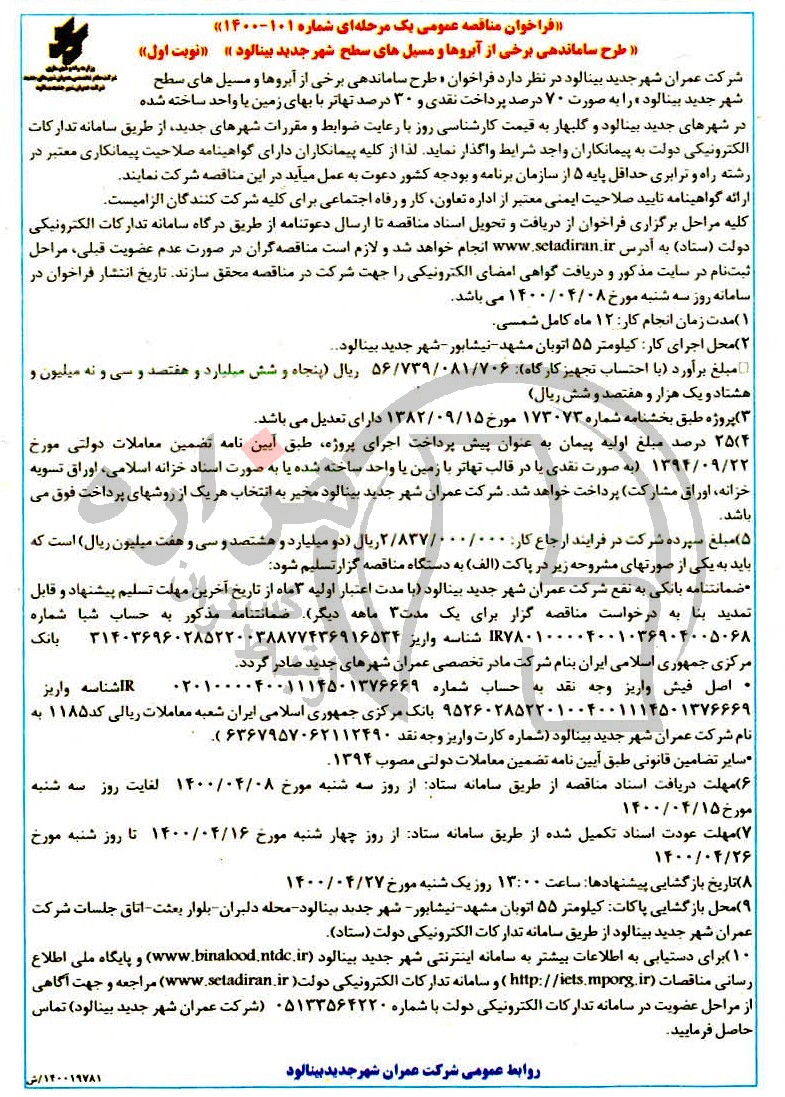 «فراخوان مناقصه عمومی یک مرحله‌ای شماره ۱۰۱-۱۴۰۰»
« طرح ساماندهی برخی از آبروها و مسیل های سطح شهر جدید بینالود » «نوبت اول»
شرکت عمران شهرجدید بینالود در نظر دارد فراخوان « طرح ساماندهی برخی از آبروها و مسیل های سطح
شهر جدید بینالود » را به صورت ۷۰ درصد پرداخت نقدی و ۳۰ درصد تهاتر با بهای زمین یا واحد ساخته شده
در شهرهای جدید بینالود و گلبهار به قیمت کارشناسی روز با رعایت ضوابط و مقررات شهرهای جدید، از طریق سامانه تدارکات
الکترونیکی دولت به پیمانکاران واجد شرایط واگذار نماید. لذا از کلیه پیمانکاران دارای گواهینامه صلاحیت پیمانکاری معتبر در
رشته راه و ترابری حداقل پایه ۵ از سازمان برنامه و بودجه کشور دعوت به عمل میآید در این مناقصه شرکت نمایند.
ارائه گواهینامه تایید صلاحیت ایمنی معتبر از اداره تعاون، کار و رفاه اجتماعی برای کلیه شرکت کنندگان الزامیست.
کلیه مراحل برگزاری فراخوان از دریافت و تحویل اسناد مناقصه تا ارسال دعوتنامه از طریق درگاه سامانه تدارکات الکترونیکی
دولت (ستاد) به آدرس www.setadiran.ir انجام خواهد شد و لازم است مناقصه‌گران در صورت عدم عضویت قبلی، مراحل
ثبت‌نام در سایت مذکور و دریافت گواهی امضای الکترونیکی را جهت شرکت در مناقصه محقق سازند. تاریخ انتشار فراخوان در
سامانه روز سه شنبه مورخ ۱۴۰۰/۰۴/۰۸ می باشد.
۱)مدت زمان انجام کار: ۱۲ ماه کامل شمسی.
۲)محل اجرای کار: کیلومتر ۵۵ اتوبان مشهد-نیشابور-شهر جدید بینالود..
□مبلغ برآورد (با احتساب تجهیزکارگاه): ۵۶/۷۳۹/۰۸۱/۷۰۶ ریال (پنجاه و شش میلیارد و هفتصد و سی و نه میلیون و
هشتاد و یک هزار و هفتصد و شش ریال)
۳)پروژه طبق بخشنامه شماره ۱۷۳۰۷۳ مورخ ۱۳۸۲/۰۹/۱۵ دارای تعدیل می باشد.
۴)۲۵ درصد مبلغ اولیه پیمان به عنوان پیش پرداخت اجرای پروژه، طبق آیین نامه تضمین معاملات دولتی مورخ
۱۳۹۴/۰۹/۲۲ (به صورت نقدی یا در قالب تهاتر با زمین یا واحد ساخته شده یا به صورت اسناد خزانه اسلامی، اوراق تسویه
خزانه، اوراق مشارکت) پرداخت خواهد شد. شرکت عمران شهر جدید بینالود مخیر به انتخاب هر یک از روشهای پرداخت فوق می
باشد.
۵)مبلغ سپرده شرکت در فرایند ارجاع کار: ۲/۸۳۷/۰۰۰/۰۰۰ریال (دو میلیارد و هشتصد و سی و هفت میلیون ریال) است که
باید به یکی از صورتهای مشروحه زیر در پاکت (الف) به دستگاه مناقصه گزار تسلیم شود:
•ضمانتنامه بانکی به نفع شرکت عمران شهر جدید بینالود (با مدت اعتبار اولیه ۳ماه از تاریخ آخرین مهلت تسلیم پیشنهاد و قابل
تمدید بنا به درخواست مناقصه گزار برای یک مدت۳ ماهه دیگر). ضمانتنامه مذکور به حساب شبا شماره
IR۷۸۰۱۰۰۰۰۴۰۰۱۰۳۶۹۰۴۰۰۵۰۶۸ شناسه واریز ۳۱۴۰۳۶۹۶۰۲۸۵۲۲۰۰۳۸۸۷۷۴۳۶۹۱۶۵۳۴ بانک
مرکزی جمهوری اسلامی ایران بنام شرکت مادر تخصصی عمران شهرهای جدید صادر گردد.
• اصل فیش واریز وجه نقد به حساب شماره IR ۰۲۰۱۰۰۰۰۴۰۰۱۱۱۴۵۰۱۳۷۶۶۶۹شناسه واریز
۹۵۲۶۰۲۸۵۲۲۰۱۰۰۴۰۰۱۱۱۴۵۰۱۳۷۶۶۶۹ بانک مرکزی جمهوری اسلامی ایران شعبه معاملات ریالی کد۱۱۸۵ به
نام شرکت عمران شهر جدید بینالود (شماره کارت واریز وجه نقد ۶۳۶۷۹۵۷۰۶۲۱۱۲۴۹۰ ).
•سایر تضامین قانونی طبق آیین نامه تضمین معاملات دولتی مصوب ۱۳۹۴.
۶)مهلت دریافت اسناد مناقصه از طریق سامانه ستاد: از روز سه شنبه مورخ ۱۴۰۰/۰۴/۰۸ لغایت روز سه شنبه
مورخ ۱۴۰۰/۰۴/۱۵
۷)مهلت عودت اسناد تکمیل شده از طریق سامانه ستاد: از روز چهار شنبه مورخ ۱۴۰۰/۰۴/۱۶ تا روز شنبه مورخ
۱۴۰۰/۰۴/۲۶
۸)تاریخ بازگشایی پیشنهادها: ساعت ۱۳:۰۰ روز یک شنبه مورخ ۱۴۰۰/۰۴/۲۷
۹)محل بازگشایی پاکات: کیلومتر ۵۵ اتوبان مشهد-نیشابور- شهر جدید بینالود-محله دلبران-بلوار بعثت-اتاق جلسات شرکت
عمران شهر جدید بینالود از طریق سامانه تدارکات الکترونیکی دولت (ستاد).
۱۰)برای دستیابی به اطلاعات بیشتر به سامانه اینترنتی شهر جدید بینالود (www.binalood.ntdc.ir) و پایگاه ملی اطلاع
رسانی مناقصات (http://iets.mporg.ir) و سامانه تدارکات الکترونیکی دولت( www.setadiran.ir) مراجعه و جهت آگاهی
از مراحل عضویت در سامانه تدارکات الکترونیکی دولت با شماره ۰۵۱۳۳۵۶۴۲۲۰ (شرکت عمران شهر جدید بینالود) تماس
حاصل فرمایید.
روابط عمومی شرکت عمران شهرجدیدبینالود
۱۴۰۰۱۹۷۸۱/ش
هزاره